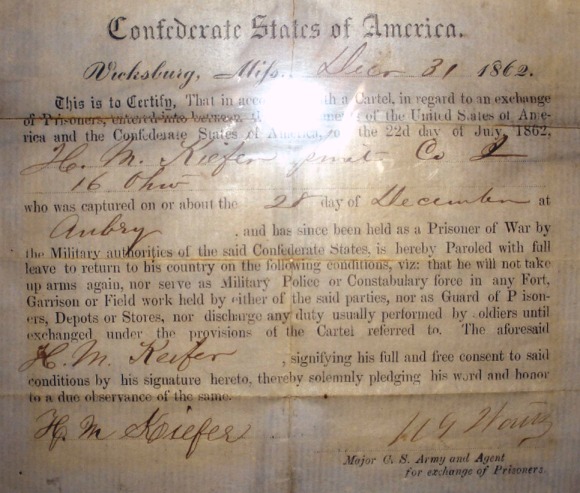 Confederate States of America.
Vicksburg, Miss. Decr 31 1862.
This is to Certify, That in acc with a Cartel, in regard to an exchange
of Prisoners, entered into between of the United States of Ame-
rica and the Confederate States of America, on the 22d day of July, 1862,
H. M. Kiefer private Co I
16 Ohio
who was captured on or about the 28 day of December at
, and has since been held as a Prisoner of War by
the Military authorities of the said Confederate States, is hereby Paroled with full
leave to return to his country on the following conditions, viz: that he will not take
up arms again, nor serve as Military Police or Constabulary force in any Fort,
Garrison or Field work held by either of the said parties, nor as Guard of Prison-
ers, Depots or Stores, nor discharge any duty usually performed by soldiers until
exchanged under the provisions of the Cartel referred to. The aforesaid
H. M. Keifer , signifying his full and free consent to said
conditions by his signature hereto, thereby solemnly pledging his word and honor
to a due observance of the same.
H. M Kiefer
Major C. S. Army and Agent
for exchange of Prisoners.